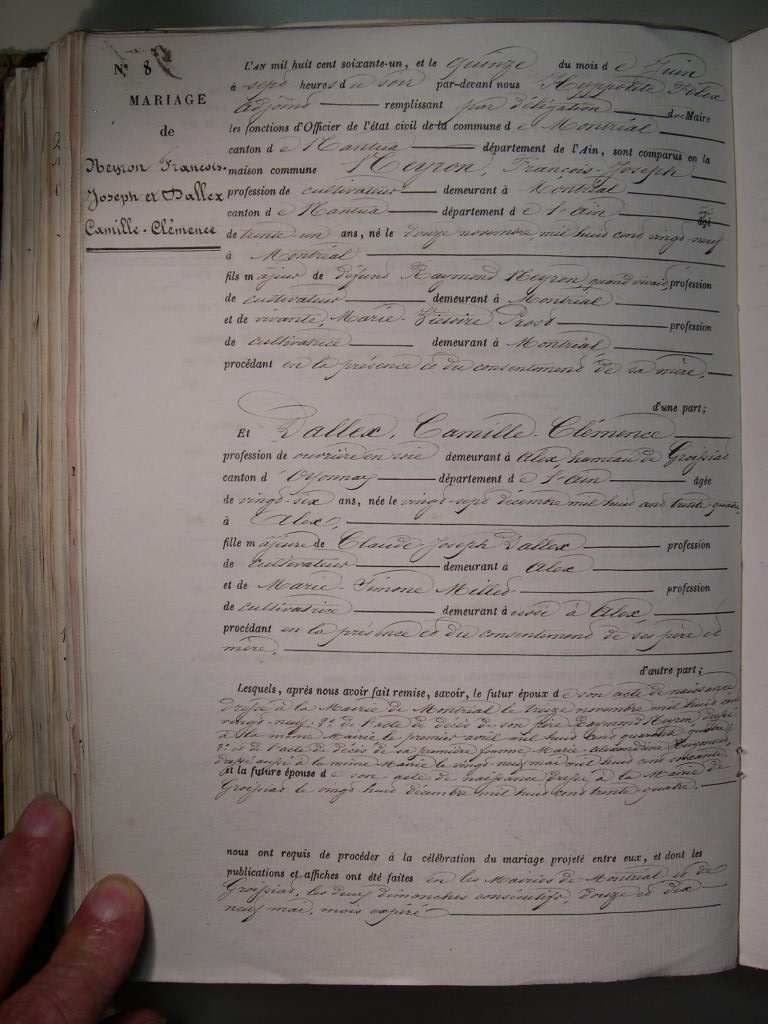 N.º 8
MARIAGE
de
Neyron François-
Joseph et Dallex
Camille-Clémence
L'AN mil huit cent soixante-un, et le quinze du mois de Juin
à sept heures du soir par-devant nous Hyppolite Félix
adjoint remplissant par délégation du Maire
les fonctions d'Officier de l'état civil de la commune de Montréal
canton de Nantua département de l'Ain, sont comparus en la
maison commune Neyron, François-Joseph
profession de cultivateur demeurant à Montréal
canton de Nantua département de l'Ain âgé
de trente un ans, né le douze novembre mil huit cent vingt neuf
à Montréal
fils majeur de défunt Raymond Neyron, quand vivait, profession
de cultivateur demeurant à Montréal
et de vivante, Marie Prost profession
de cultivatrice demeurant à Montréal
procédant en la présence et du consentement de sa mère.
d'une part;
Et Dallex, Camille-Clémence
profession de ouvrière en soie demeurant à Alex, hameau de Groissiat
canton d'Oyonnax département de l'Ain âgée
de vingt-six ans, née le vingt-sept décembre mil huit cent trente quatre
à Alex,
fille majeure de Claude-Joseph Dallex profession
de cultivateur demeurant à Alex
et de Marie-Simone Millet profession
de cultivatrice demeurant à Alex,
procédant en la présence et du consentement de ses père et
mère.
d'autre part;
Lesquels, après nous avoir fait remise, savoir, le futur époux de son acte de naissance
dressé à la Mairie de Montréal le treize novembre mil huit cent
vingt-neuf; 2º de l'acte de décès de son père Raymond Neyron dressé
à la même Mairie le premier avril mil huit cent quarante quatre
3º et de l'acte de décès de sa première femme Marie-Alexandrine
dressé aussi à la même Mairie le vingt-neuf mai mil huit cent soixante
et la future épouse de son acte de naissance dressé à la Mairie de
Groissiat le vingt huit décembre mil huit cent trente quatre.
nous ont requis de procéder à la célébration du mariage projeté entre eux, et dont les
publications et affiches ont été faites en les Mairies de Montréal et de
Groissiat, les deux dimanches consécutifs, douze et dix
neuf mai, mois expiré